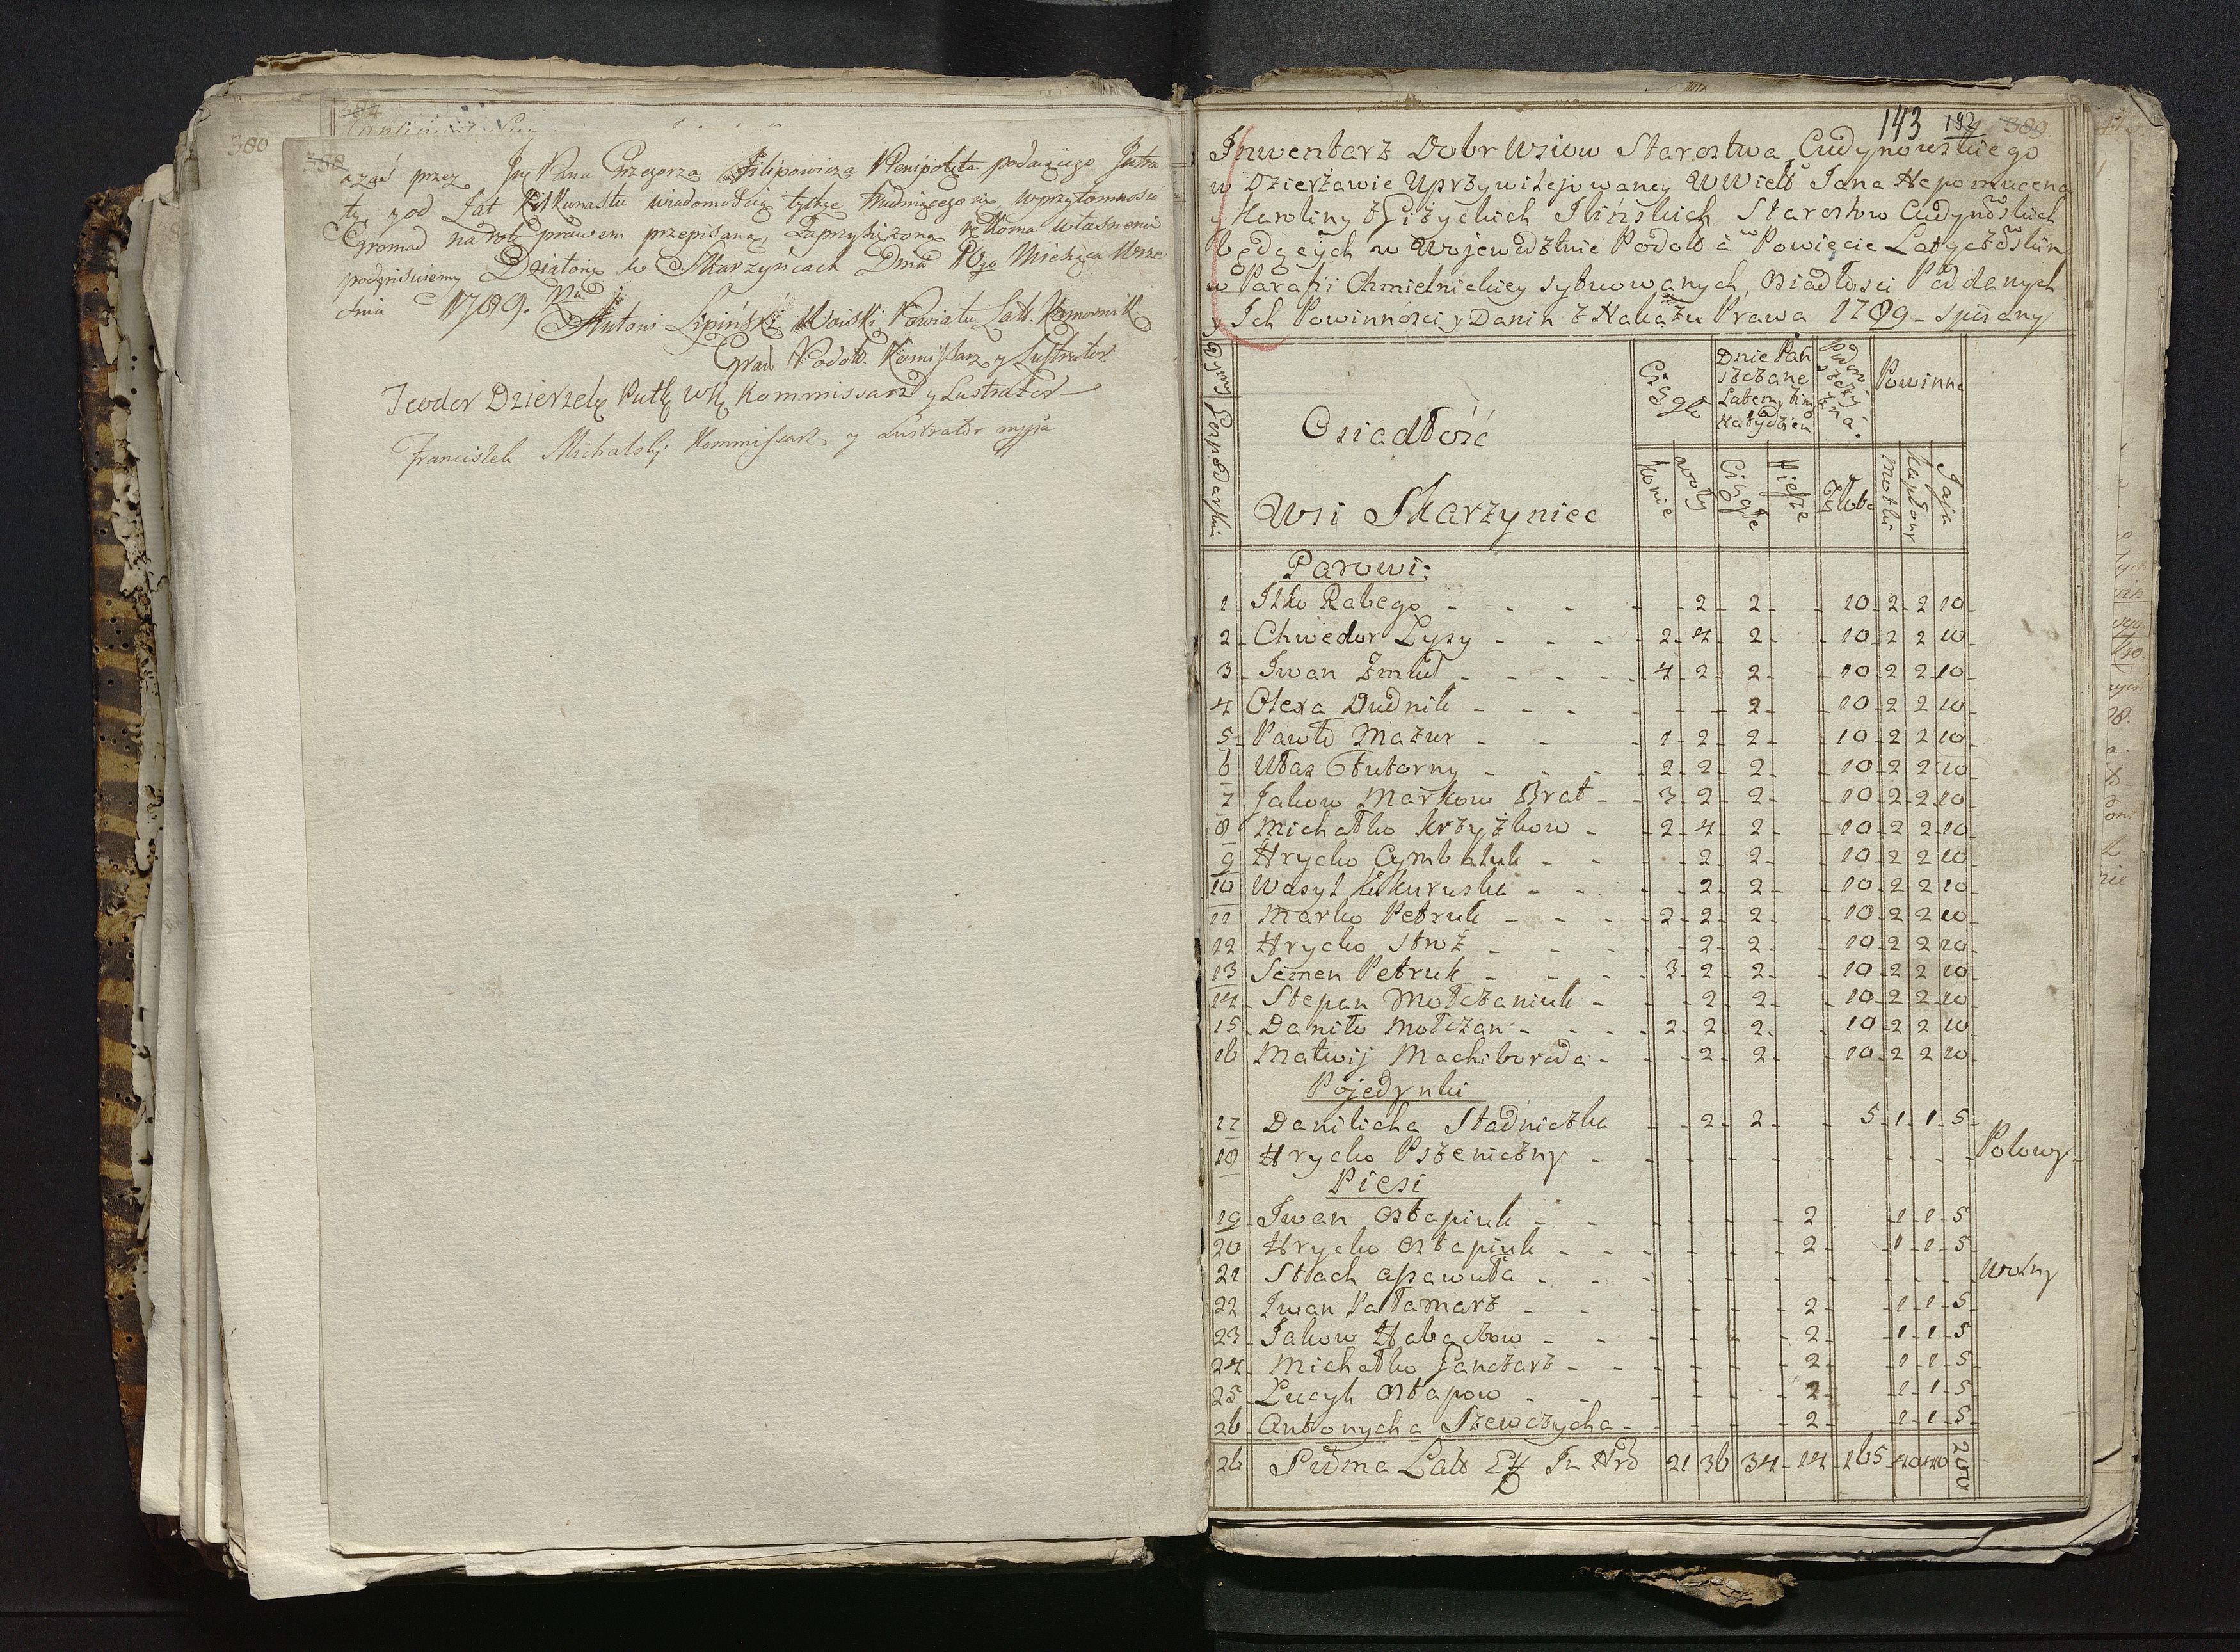 384
380
388
azać przez Jmć Pana Grzegorza Filipowicza Plenipotęta podaiącego Jntra
tę, y od Lat Kilkunastu wiadomością tychże trudniącego się w przytomności
Gromad na rotę prawem przepisaną, Zaprzysiężoną rękoma własnemi
podpisuiemy Działo się w Skarzyńcach Dnia 10go Miesiąca Wrze
śnia 1789. Rku
Antoni Lipiński Woiski Powiatu Lat. Komornik
Gran. Podol. Kommissarz y Lustrator
Teodor Dzierzek Putk Wk Kommissarz y Lustrator
Franciszek Michalski Kommissarz y Lustrator mppa
143 192 389.
Jnwentarz Dobr Wsiow Starostwa Cudynowskiego
w Dzierżawie Uprzywilejowaney WWielb Jana Nepomucena
y Karoliny z Giżyckich Jlińskich Starostow Cudynowskich
będących w Wojewodztwie Podol: a w Powięcie Latyczowskim
w Parafii Chmielnickiey sytuowanych, Osiadłosci Poddanych
y Ich Powinności y Danin z Nakazu Prawa 1789 - spisany
Dymy Gospodarskie
Osiadłość
Wsi Skarzyniec
Ciągłe
Dnie Pań
szczane
Latem y Zimą
Na tydzień
Powinne
Konie
Woły
Ciągłe
Piesze
Zboże
Motki
Kapłony
Jaja
Parowi:
1 Jlko Rabego - - - 2 - 2 - 10 - 2 - 2 10
2 - Chwedor Łysy - - - 2 - 4 - 2 - 10 2 2 10
3 - Jwan Zmuł - - - 4 - 2 2 - 10 2 2 10
4 Olexa Dudnik - - - 2 - 10 2 2 10
5 - Pawło Mazur - - - 1 - 2 - 2 - 10 - 2 2 10
6 Włas Ołutorny - - - 2 - 2 2 - 10 - 2 2 10
7 Jakow Markow Brat - 3 - 2 2 - 10 - 2 - 2 10
8 Michałko Krzyżkow - 2 - 4 - 2 - 10 - 2 2 - 10
9 Hrycko Cymbaluk - - 2 2 - 10 - 2 2 10
10 Wasyl Kukuruska - - 2 - 2 - 10 - 2 2 10
11 Marko Petruk - - - 2 - 2 2 - 10 - 2 2 10
12 Hrycko Stroż - - - 2 - 2 - 10 - 2 2 10
13 Semen Petruk - - - 3 - 2 - 2 - 10 2 2 10
14 - Stepan Mołczaniuk - - 2 2 - 10 - 2 2 - 10
15 - Daniło Mołczan - - - 2 - 2 2 - 10 - 2 2 10
16 Matwij Machiboroda - - 2 2 - 10 - 2 2 10
Pojedynki
17 Danilicha Stadniczka - 2 - 2 - 5 - 1 - 1 - 5
18 Hrycko Pszeniczny - - - Polowy
Piesi
19 - Jwan Ostapiuk - - - 2 - 1 - 1 - 5
20 Hrycko Ostapiuk - - - 2 - 1 - 1 - 5
21 Stach Assawuła - - - Wolny
22 Jwan Pałamarz - - - 2 - 1 - 1 - 5
23 - Jakow Habaczow - - - 2 - 1 - 1 - 5
24 - Michałko Ganczarz - - - 2 - 1 - 1 - 5
25 - Łucyk Ostapow - - - 2 - 1 - 1 - 5
26 - Antonycha Szewczycha - - - 2 - 1 - 1 - 5
26 Suma Lat 21 36 34 - 14 - 165 - 40 40 200